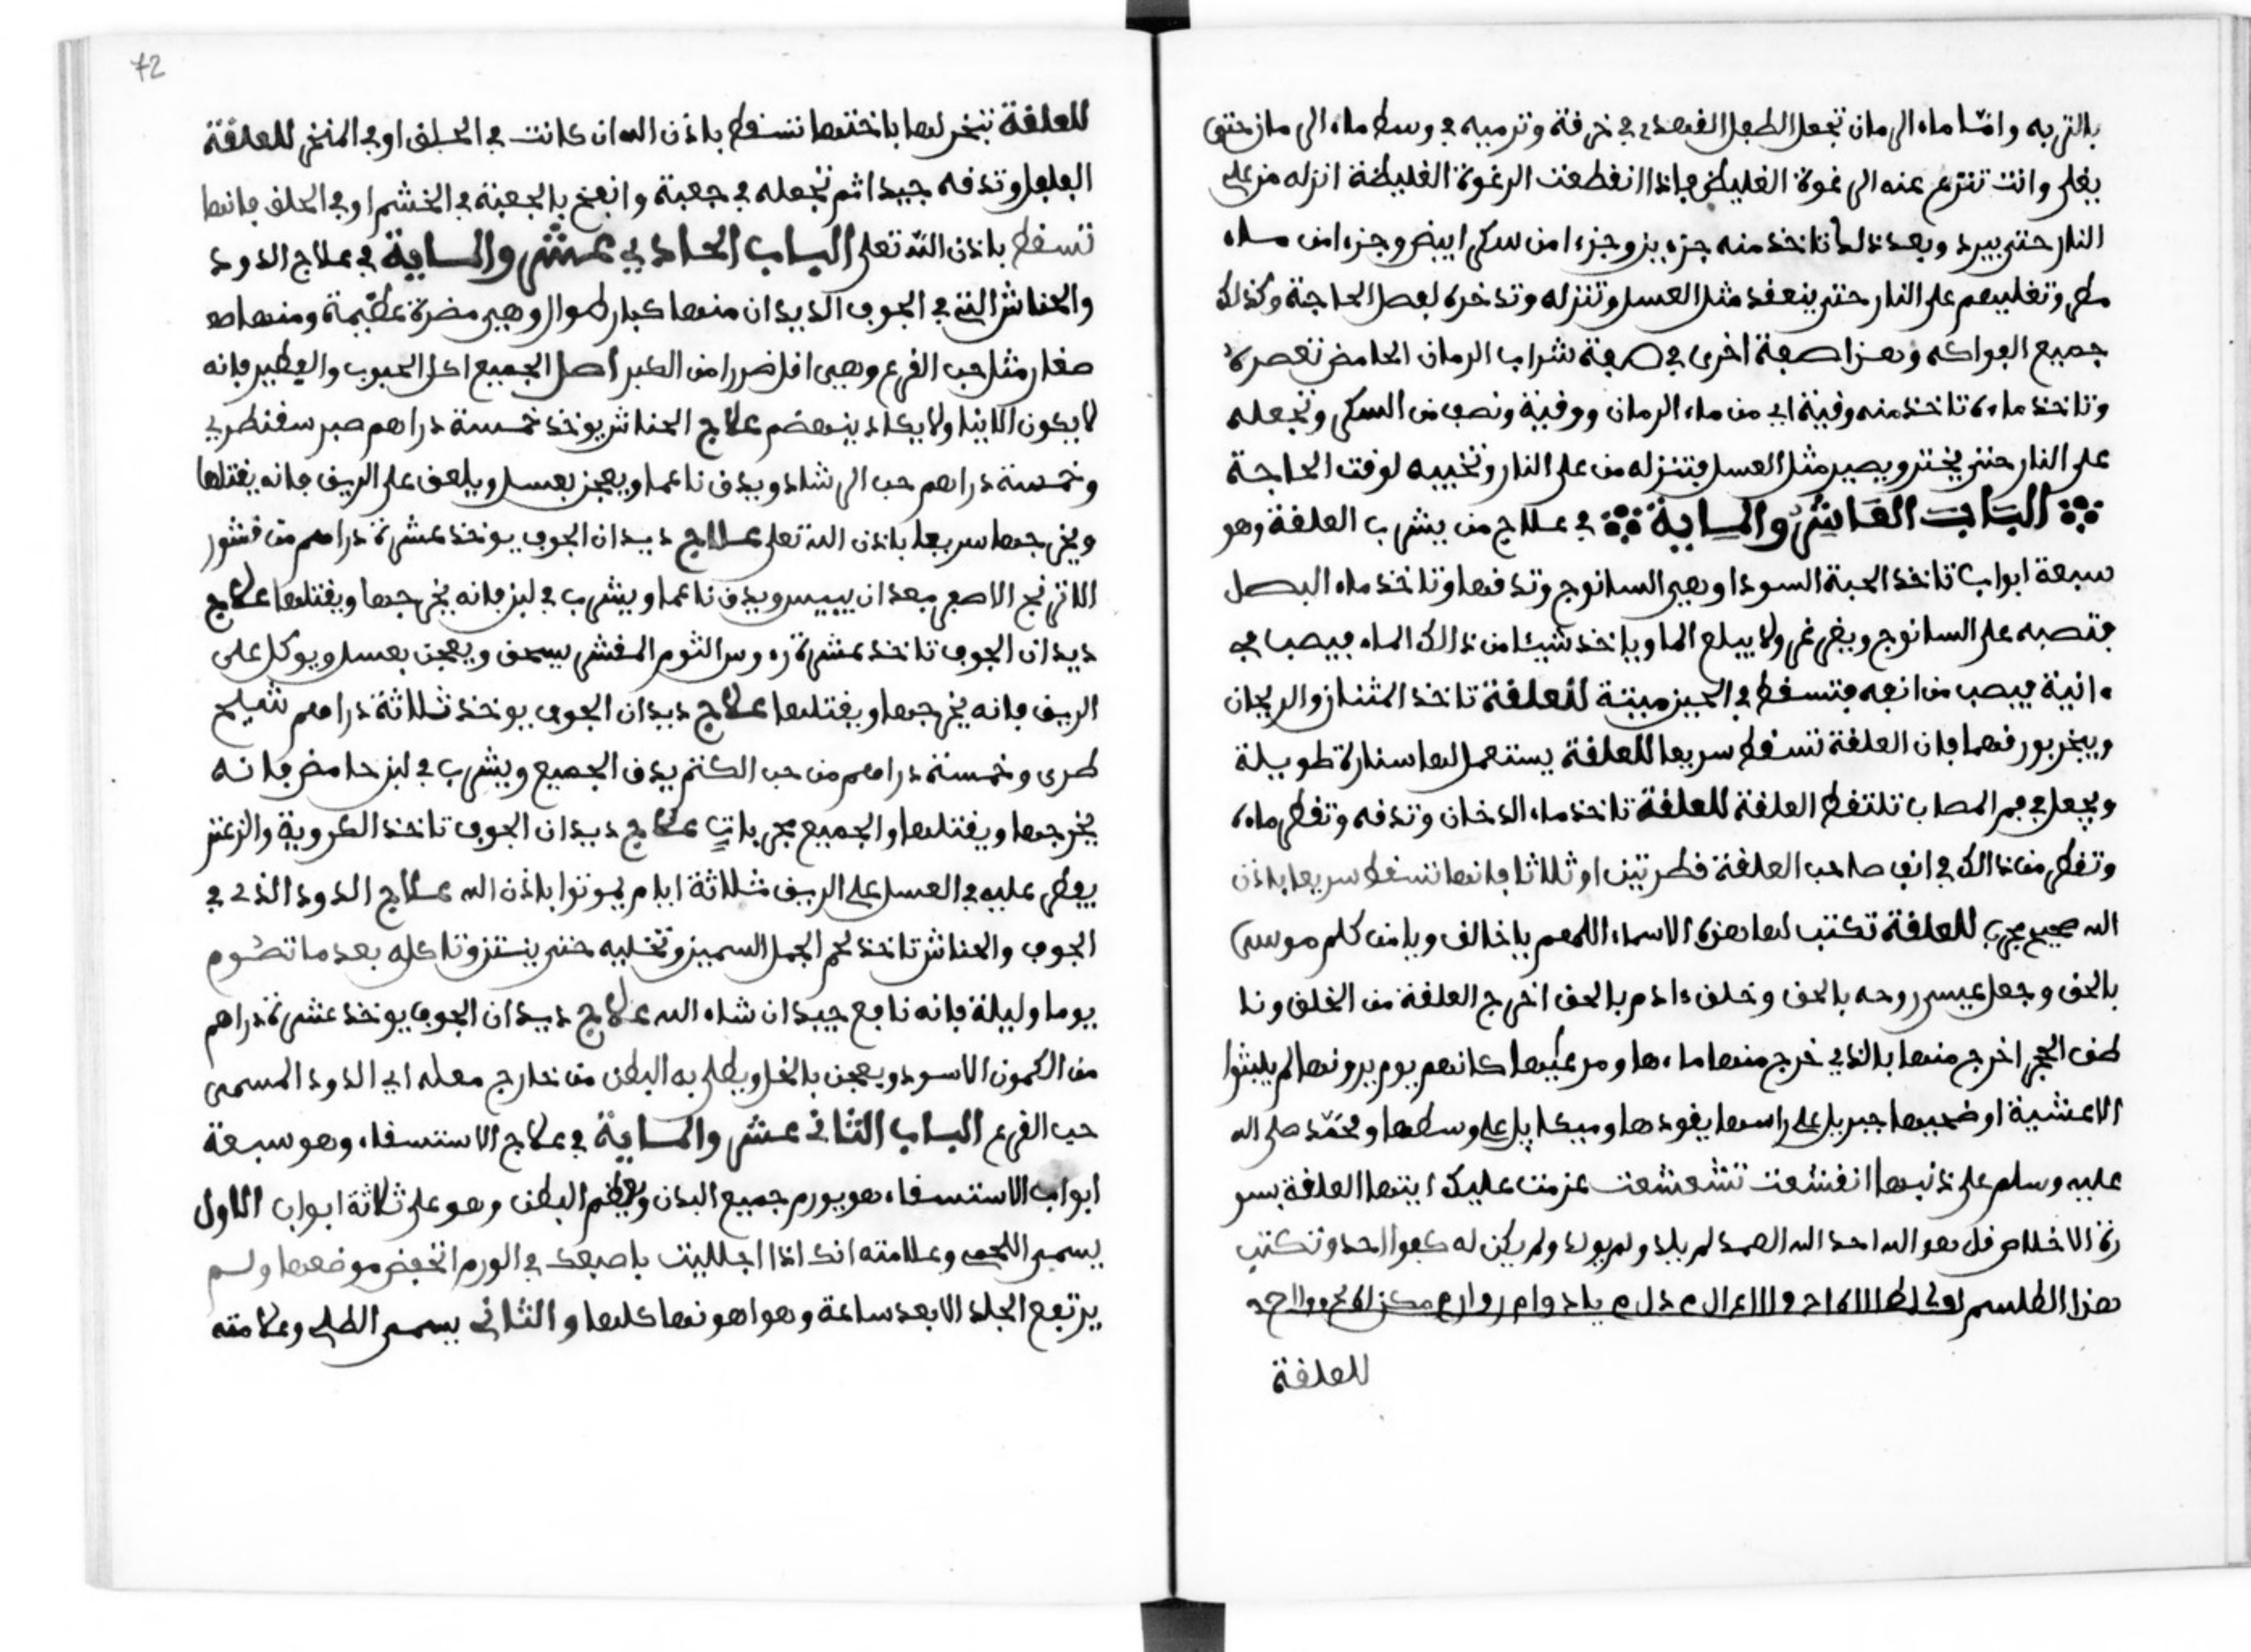 بالتربه واما ماء الرمان تجعل الطفل القهندي في خرقة وترميه في وسط ماء الرمان حتى
يغلي وانت تنزع عنه الرغوة الغليظ فاذا انقطعت الرغوة الغليظة انزله من على
النار حتى يبرد وبعد ذلك تاخذ منه جزءين وجزءا من سكر ابيض وجزءا من ماء
مطر وتغليهم على النار حتى ينعقد مثل العسل وتنزله وتدخره لفصل الحاجة وكذلك
جميع الفواكه وهذا صفة اخرى في صفة شراب الرمان الحامض تعصره
وتاخذ ماءه تاخذ منه وقية اي من ماء الرمان ووقية ونصف من السكر وتجعله
على النار حتى يختر ويصير مثل العسل فتنزله من على النار وتخبيه لوقت الحاجة
الباب العاشر والماية في علاج من يشرب العلقة وهو
سبعة ابواب تاخذ الحبة السودا وهي السانوج وتدقها وتاخذ ماء البصل
فتصبه على السانوج ويغرغر ولا يبلع الما وياخذ شيئا من ذالك الماء فيصب في
ءانية فيصب من انفه فتسقط في الحين ميتة للعلقة تاخذ المثنان والريحان
ويبخر بورقهما فان العلقة تسقط سريعا للعلقة يستعمل لها سنارة طويلة
ويجعل في فم المصاب تلتقط العلقة للعلقة تاخذ ماء الدخان وتدقه وتقطر ماءه
وتقطر من ذالك في انف صاحب العلقة قطرتين او ثلاثا فانها تسقط سريعا باذن
الله صحيح مجرب للعلقة تكتب لها هذه الاسماء اللهم يا خالف ويا من كلم موسى
بالحق وجعل عيسى روحه بالحق وخلق ءادم بالحق اخرج العلقة من الخلق ونا
طق الحجر اخرج منها بالذي خرج منها ماءها ومرعيها كانهم يوم يرونها لم يلبثوا
الا عشية او ضحيها جبريل على راسها يقودها وميكايل على وسطها ومحمد صلى الله
عليه وسلم على ذنبها انقشعت تشعشعت عزمت عليك ايتها العلقة بسو
رة الاخلاص قل هو الله احد الله الصمد لم يلد ولم يولد ولم يكن له كفوا احد وتكتب
هذا الطلسم
للعلقة
72
للعلقة تبخر لها باختها تسقط باذن الله ان كانت في الحلق او في المنخر للعلقة
الفلفل وتدقه جيدا ثم تجعله في جعبة وانفخ بالجعبة في الخشم او في الحلق فانها
تسقط باذن الله تعلى الباب الحادي عشر والماية في علاج الدود
والحناش التي في الجوف الديدان منها كبار طوال وهي مضرة عظيمة ومنها ما هو
صغار مثل حب القرع وهي اقل ضررا من الكبر اصل الجميع اكل الحبوب والفطير فانه
لا يكون الا نيا ولا يكاد ينهضم علاج الحناش يوخذ خمسة دراهم صبر سقنطري
وخمسة دراهم حب الرشاد ويدق ناعما ويعجن بعسل ويلعق على الريق فانه يقتلها
ويخرجها سريعا باذن الله تعلى علاج ديدان الجوف يوخذ عشرة دراهم من قشور
الاترنج الاصفر بعد ان ييبس ويدق ناعما ويشرب في لبن فانه يخرجها ويقتلها علاج
ديدان الجوف تاخذ عشرة رءوس الثوم المقشر يسحق ويعجن بعسل ويوكل على
الريق فانه يخرجها ويقتلها علاج ديدان الجوف يوخذ ثلاثة دراهم شيح
طرى وخمسة دراهم من حب الكتم يدق الجميع ويشرب في لبن حامض فانه
يخرجها ويقتلها والجميع مجربات علاج ديدان الجوف تاخذ الكروية والزعتر
يفطر عليه في العسل على الريق ثلاثة ايام يموتوا باذن الله علاج الدود الذى في
الجوف والحناش تاخذ لحم الجمل السمين وتخليه حتى ينتن وتاكله بعد ما تصوم
يوما وليلة فانه نافع جيد ان شاء الله علاج ديدان الجوف يوخذ عشرة دراهم
من الكمون الاسود ويعجن بالخل ويطلى به البطن من خارج معله اي الدود المسمى
حب القرع الباب الثانى عشر والماية في علاج الاستسقاء وهو سبعة
ابواب الاستسقاء هو يورم جميع البدن ويعظم البطن وهو على ثلاثة ابواب الاول
يسمى اللحمى وعلامته انك اذا اجلليت باصبعك في الورم انخفض موضعها ولم
يرتفع الجلد الا بعد ساعة وهو اهونها كلها والثانى يسمى الطبلى وعلامته